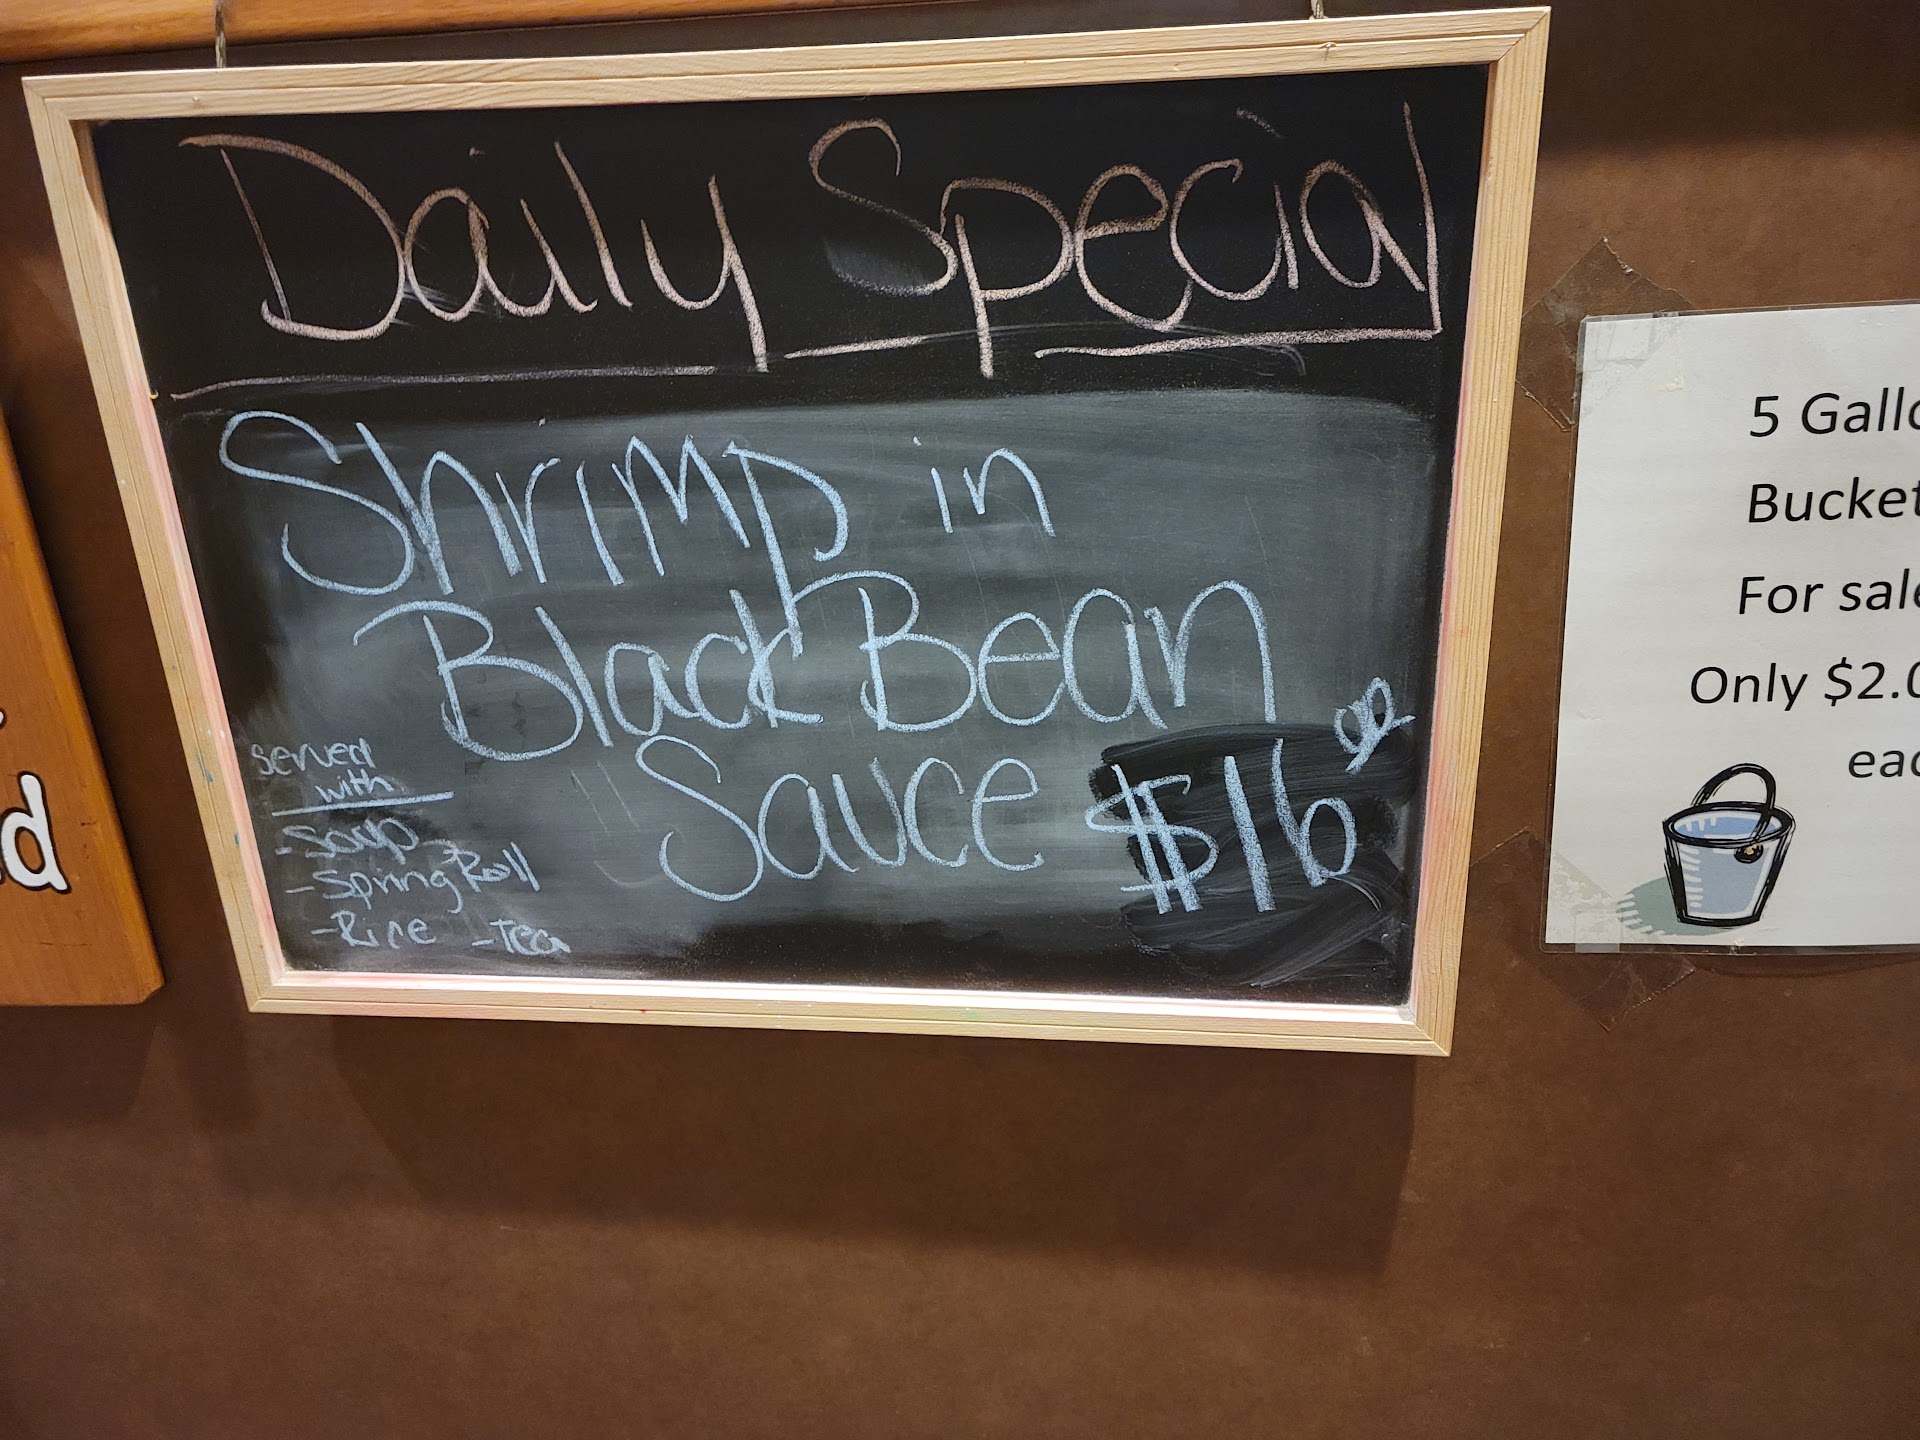 Daily Special
Shrimp in
Black Bean
Sauce $16 00
served
with
- Soup
- Spring Roll
- Rice - Tea
5 Gallo
Bucket
For sale
Only $2.0
eac
d